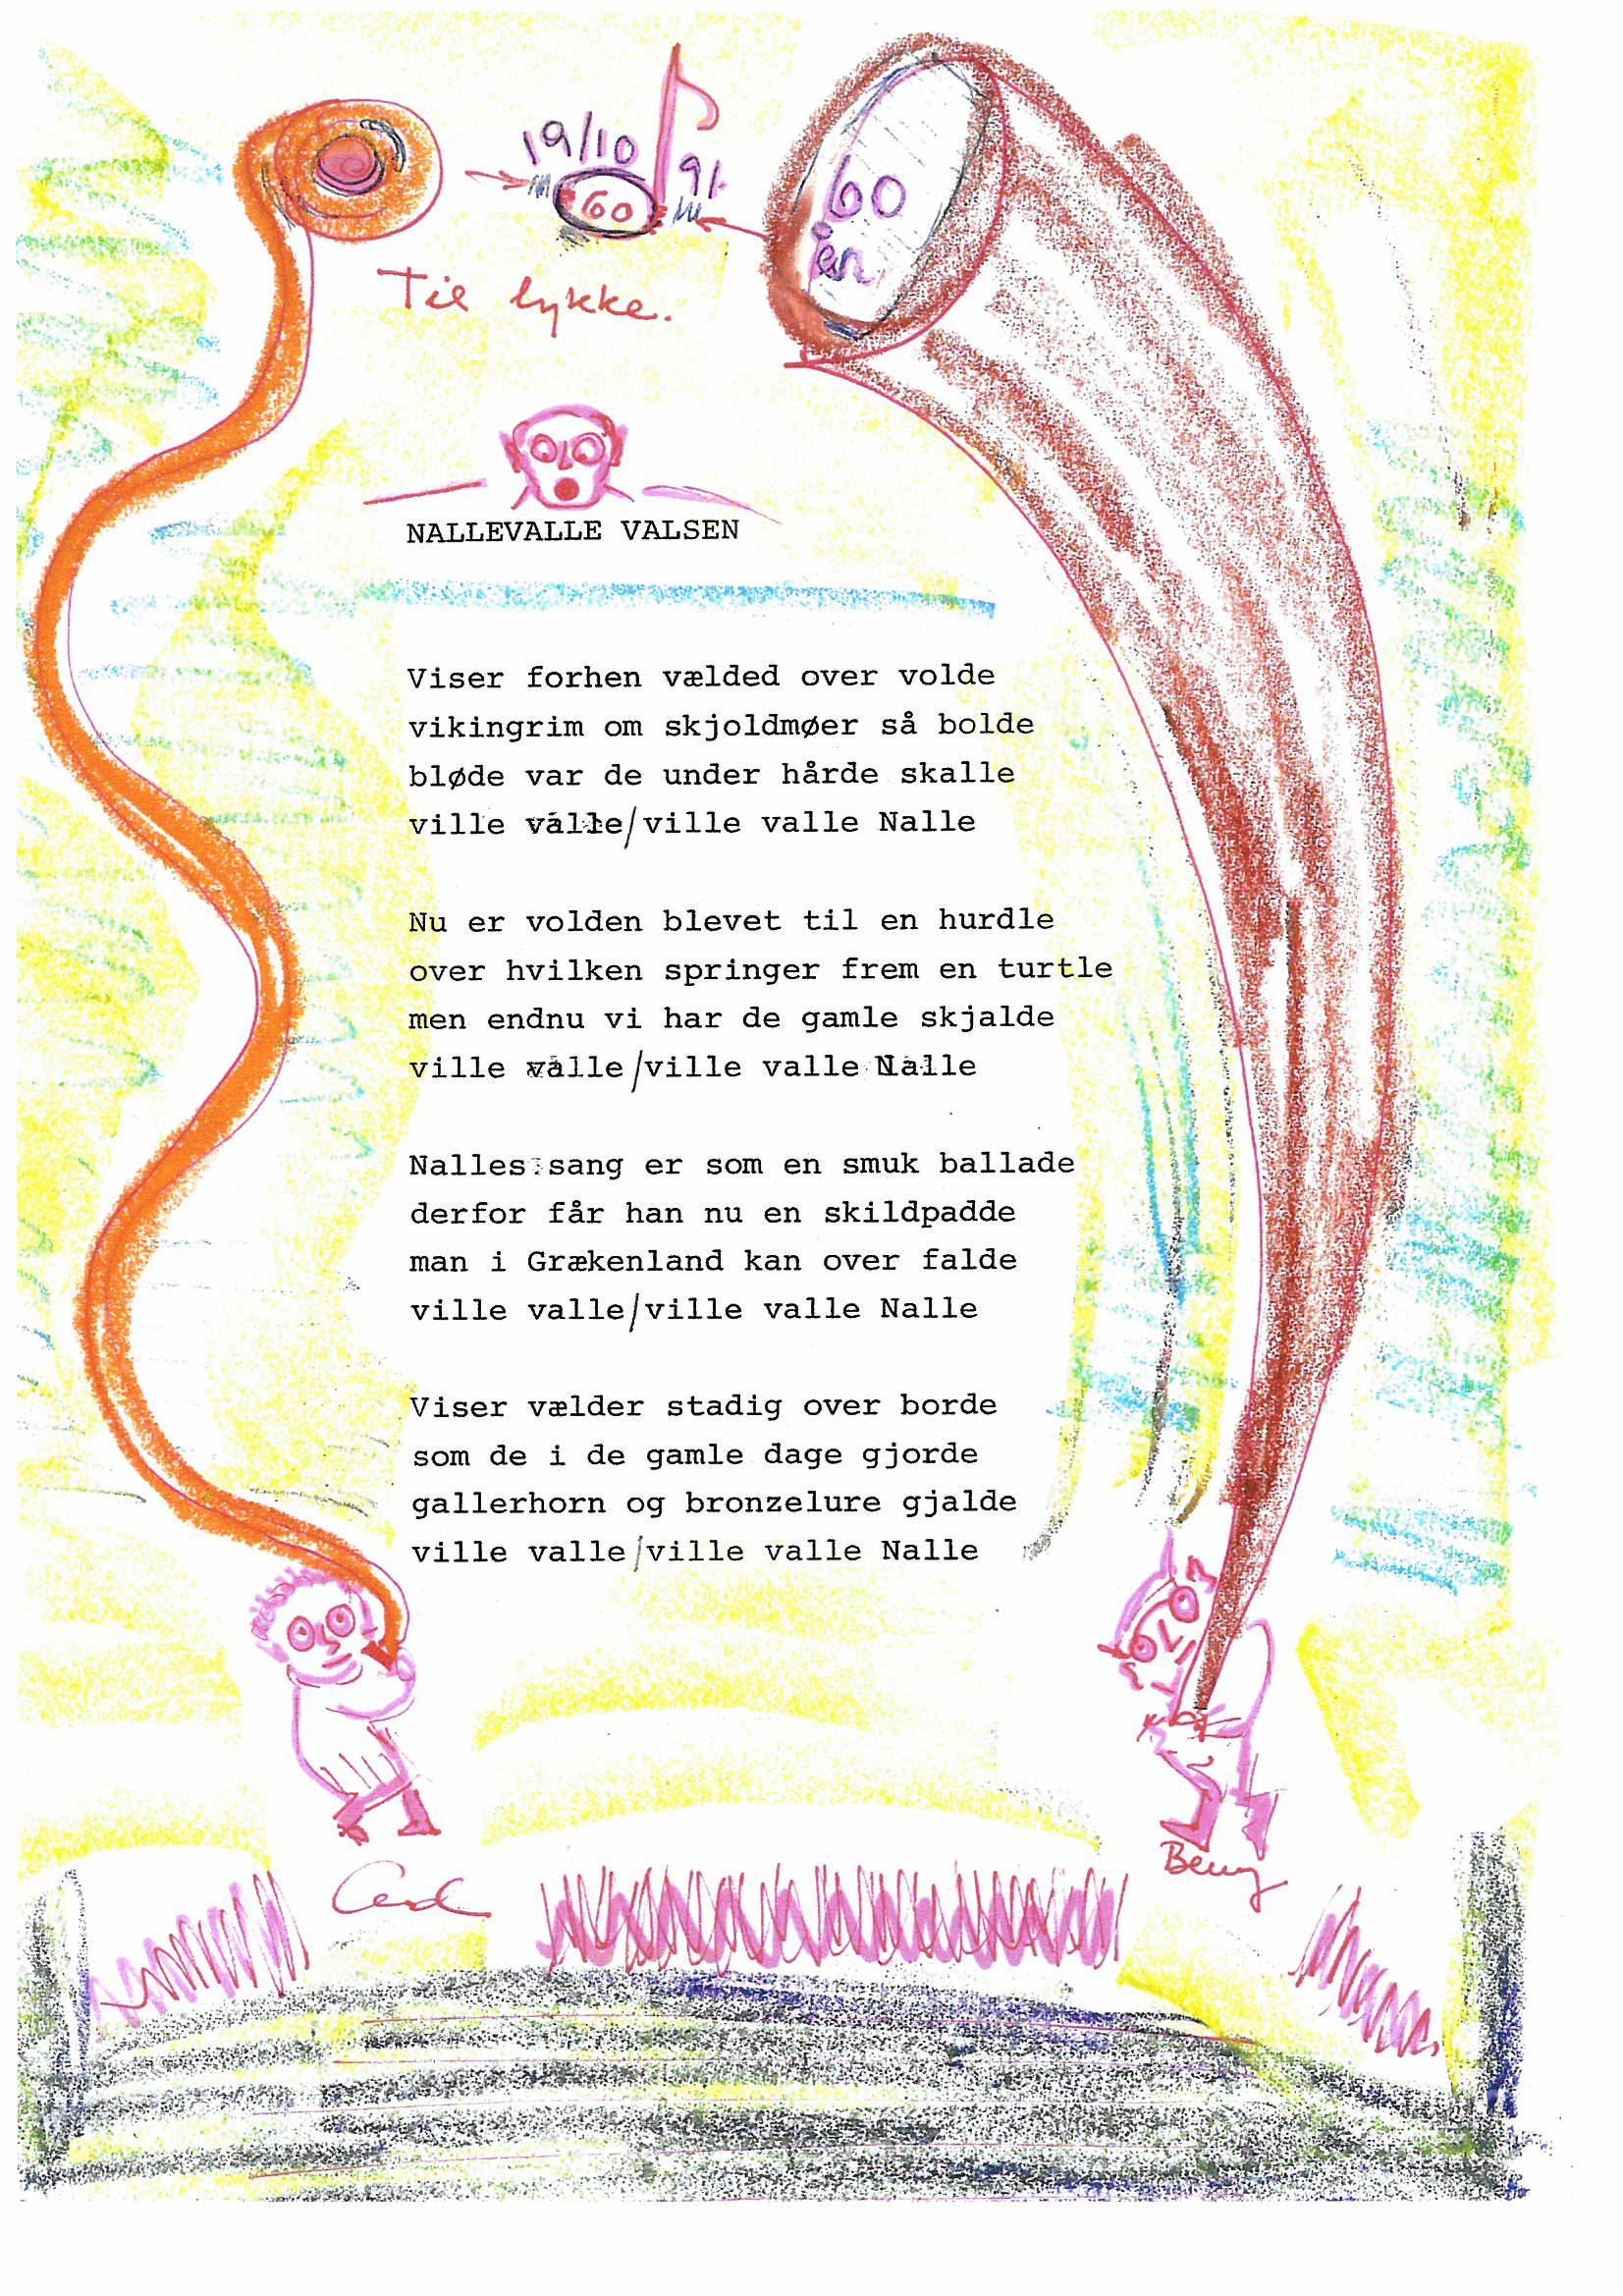 19/10
91.
60
60
år
Til lykke.
NALLEVALLE VALSEN
Viser forhen vælded over volde
vikingrim om skjoldmøer så bolde
bløde var de under hårde skalle
ville valle/ville valle Nalle
Nu er volden blevet til en hurdle
over hvilken springer frem en turtle
men endnu vi har de gamle skjalde
ville valle/ville valle Nalle
Nalles sang er som en smuk ballade
derfor får han nu en skildpadde
man i Grækenland kan over falde
ville valle/ville valle Nalle
Viser vælder stadig over borde
som de i de gamle dage gjorde
gallerhorn og bronzelure gjalde
ville valle/ville valle Nalle